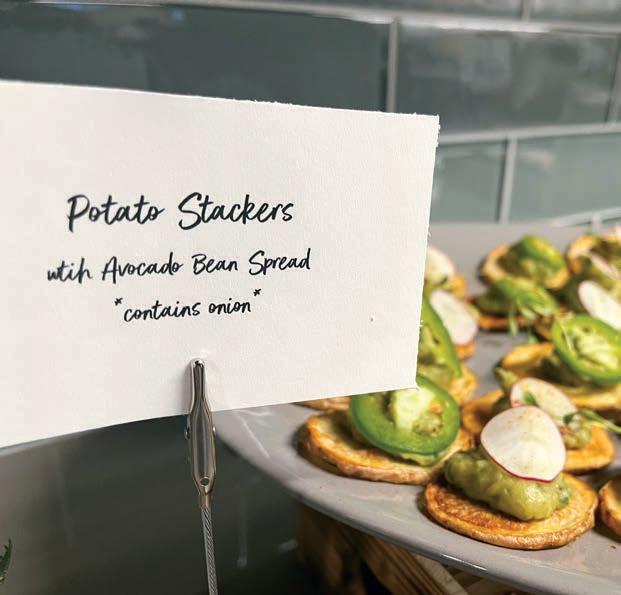 Potato Stackers
wtih Avocado Bean Spread
*contains onion*